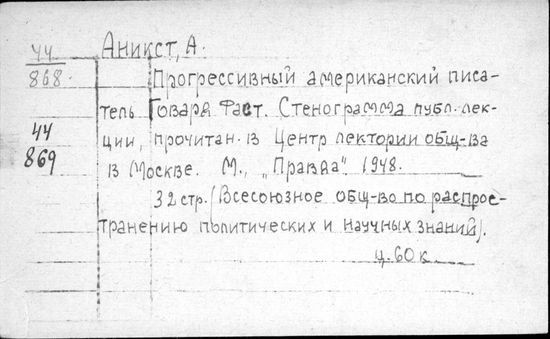 44 Аникст, А.
868. Прогрессивный американский писа-
тель Говард Фаст. Стенограмма публ. лек-
44 ции, прочитан. в Центр лектории общ-ва
869 в Москве. М., „Правда“. 1948.
32 стр. (Всесоюзное общ-во по распрос-
транению политических и научных знаний).
ц. 60 к